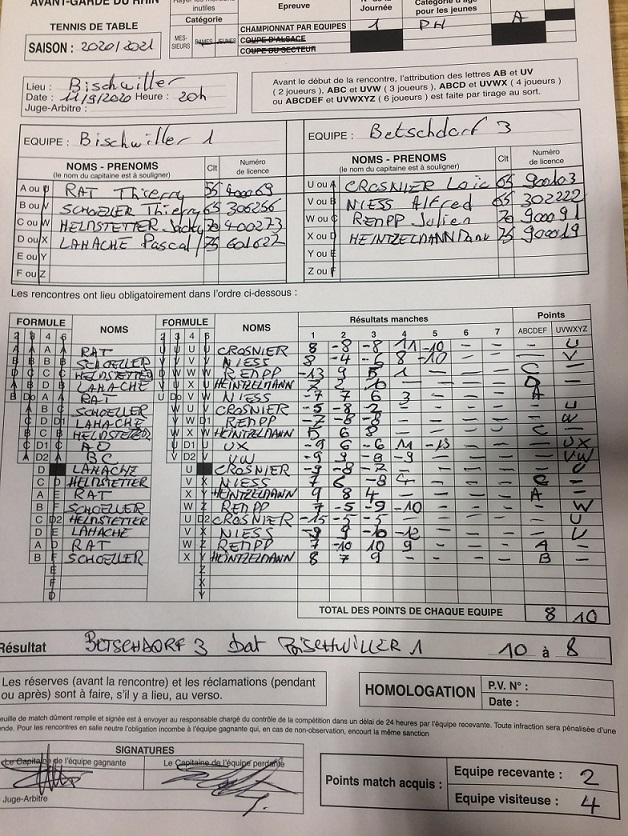 AVANT-GARDE DU RHIN
TENNIS DE TABLE
SAISON : 2020/2021
inutiles
Catégorie
MES-SIEURS DAMES JEUNES
Epreuve
CHAMPIONNAT PAR EQUIPES
COUPE D'ALSACE
COUPE DU SECTEUR
Journée
1
pour les jeunes
PH
A
Lieu : Bischwiller
Date : 11/9/2020 Heure : 20h
Juge-Arbitre :
Avant le début de la rencontre, l'attribution des lettres AB et UV
( 2 joueurs ), ABC et UVW ( 3 joueurs ), ABCD et UVWX ( 4 joueurs )
ou ABCDEF et UVWXYZ ( 6 joueurs ) est faite par tirage au sort.
EQUIPE : Bischwiller 1
EQUIPE : Betschdorf 3
NOMS - PRENOMS (le nom du capitaine est à souligner) Clt Numéro de licence
A ou U RAT Thierry 55 900069
B ou V SCHOELLER Thierry 65 306256
C ou W HELMSTETTER Jacky 70 400273
D ou X LAHACHE Pascal 75 601622
E ou Y
F ou Z
NOMS - PRENOMS (le nom du capitaine est à souligner) Clt Numéro de licence
U ou A CROSNIER Loic 65 900103
V ou B NIESS Alfred 65 302222
W ou C REMPP Julien 70 900091
X ou D HEINTZELMANN 75 900019
Y ou E
Z ou F
Les rencontres ont lieu obligatoirement dans l'ordre ci-dessous :
FORMULE NOMS FORMULE NOMS Résultats manches Points
1 2 3 4 5 6 7 ABCDEF UVWXYZ
RAT CROSNIER 8 -8 -8 11 -10 — — — U
SCHOELLER NIESS 8 -4 -6 8 -10 — — — V
HELMSTETTER REMPP -13 9 5 1 — — — C —
LAHACHE HEINTZELMANN 7 2 10 — — — — D —
RAT NIESS -7 7 6 3 — — — A —
SCHOELLER CROSNIER -5 -8 -2 — — — — — U
LAHACHE REMPP — W
HELMSTETTER HEINTZELMANN 5 6 8 — — — — C —
AD UX -9 6 -6 11 -13 — — — UX
BC VW -9 9 -8 -9 — — — — VW
LAHACHE CROSNIER -9 -8 -2 — — — — — U
HELMSTETTER NIESS C —
RAT HEINTZELMANN 9 8 4 — — — — A —
SCHOELLER REMPP 7 -5 -9 -10 — — — — W
HELMSTETTER CROSNIER -15 -5 -5 — — — — — U
LAHACHE NIESS — V
RAT REMPP 7 -10 10 9 — — — A —
SCHOELLER HEINTZELMANN 8 7 9 — — — — B —
TOTAL DES POINTS DE CHAQUE EQUIPE 8 10
Résultat BETSCHDORF 3 bat BISCHWILLER 1 10 à 8
Les réserves (avant la rencontre) et les réclamations (pendant
ou après) sont à faire, s'il y a lieu, au verso.
HOMOLOGATION
P.V. N° :
Date :
euille de match dûment remplie et signée est à envoyer au responsable chargé du contrôle de la compétition dans un délai de 24 heures par l'équipe recevante. Toute infraction sera pénalisée d'une
ende. Pour les rencontres en salle neutre l'obligation incombe à l'équipe gagnante qui, en cas de non-observation, encourt la même sanction
SIGNATURES
Le Capitaine de l'équipe gagnante
Le Capitaine de l'équipe perdante
Juge-Arbitre
Points match acquis :
Equipe recevante : 2
Equipe visiteuse : 4